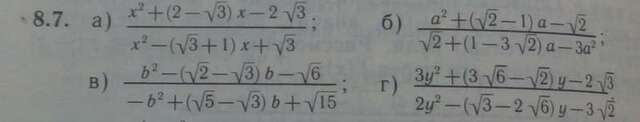 8.7. а) \frac{x^2+(2-\sqrt{3})x-2\sqrt{3}}{x^2-(\sqrt{3}+1)x+\sqrt{3}}; б) \frac{a^2+(\sqrt{2}-1)a-\sqrt{2}}{\sqrt{2}+(1-3\sqrt{2})a-3a^2};
в) \frac{b^2-(\sqrt{2}-\sqrt{3})b-\sqrt{6}}{-b^2+(\sqrt{5}-\sqrt{3})b+\sqrt{15}}; г) \frac{3y^2+(3\sqrt{6}-\sqrt{2})y-2\sqrt{3}}{2y^2-(\sqrt{3}-2\sqrt{6})y-3\sqrt{2}}